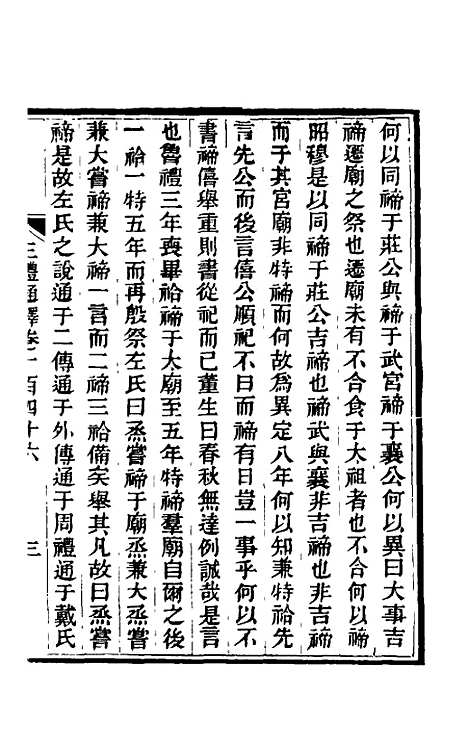 何以同禘于莊公與禘于武宮禘于襄公何以異曰大事吉
禘遷廟之祭也遷廟未有不合食于大祖者也不合何以禘
昭穆是以同于莊公吉禘也禘武與襄非吉禘也非吉禘
而于其宮廟非特禘而何故爲異定八年何以知兼特祫先
言先公而後言僖公順祀不日而禘有日豈一事乎何以不
書禘僖舉重則書從祀而已董生曰春秋無達例誠哉是言
也魯禮三年喪畢祫禘于大廟至五年特禘羣廟自爾之後
一祫一特五年而再殷祭左氏曰烝嘗禘于廟烝兼大烝嘗
兼大嘗禘兼大禘一言而二禘三祫備矣舉其凡故曰烝嘗
禘是故左氏之說通于二傳通于外傳通于周禮通于戴氏
三禮通釋卷二百四十六
三